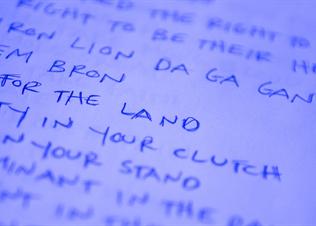 THE RIGHT TO
RIGHT TO BE THEIR
IRON LION DA GA GAN
EM BRON
FOR THE LAND
TY IN YOUR CLUTCH
IN YOUR STAND
MINANT IN THE
NT IN